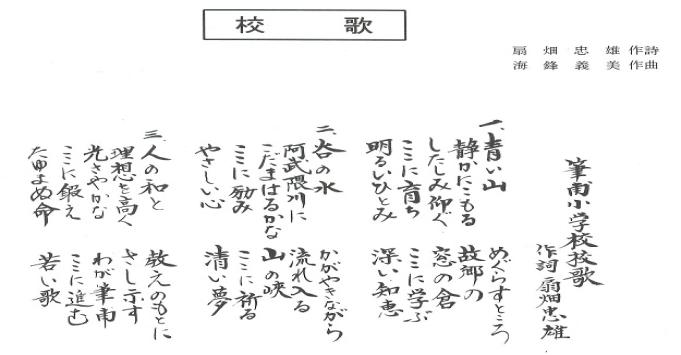 校歌
扇畑忠雄作詩
海鋒義美作曲
筆甫小学校校歌
作詞 扇畑忠雄
一、青い山
静かにこもる
したしみ仰ぐ
ここに育ち
明るいひとみ
めぐらすところ
故郷の
窓の倉
ここに学ぶ
深い知恵
二、谷の水
阿武隈川に
こだまはるかな
ここに励み
やさしい心
かがやきながら
流れ入る
山の峡
ここに祈る
清い夢
三、人の和と
理想を高く
光さやかな
ここに鍛え
たゆまぬ命
教えのもとに
さし示す
わが筆甫
ここに進む
若い歌